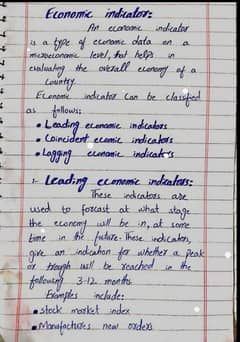 Economic indicator:
An economic indicator
is a type of economic data on a
microeconomic level, that helps in
evaluating the overall economy of a
country.
Economic indicator can be classified
as follows:
• Leading economic indicators
• Coincident ecomic indicators
• Lagging economic indicators
1- Leading economic indicators:
These indicators are
used to forcast at what stage
the economy will be in, at some
time in the future. These indicators,
give an indication for whether a peak
or trough will be reached in the
following 3-12 months.
Examples include:
• Stock market index
• Manufactures new orders